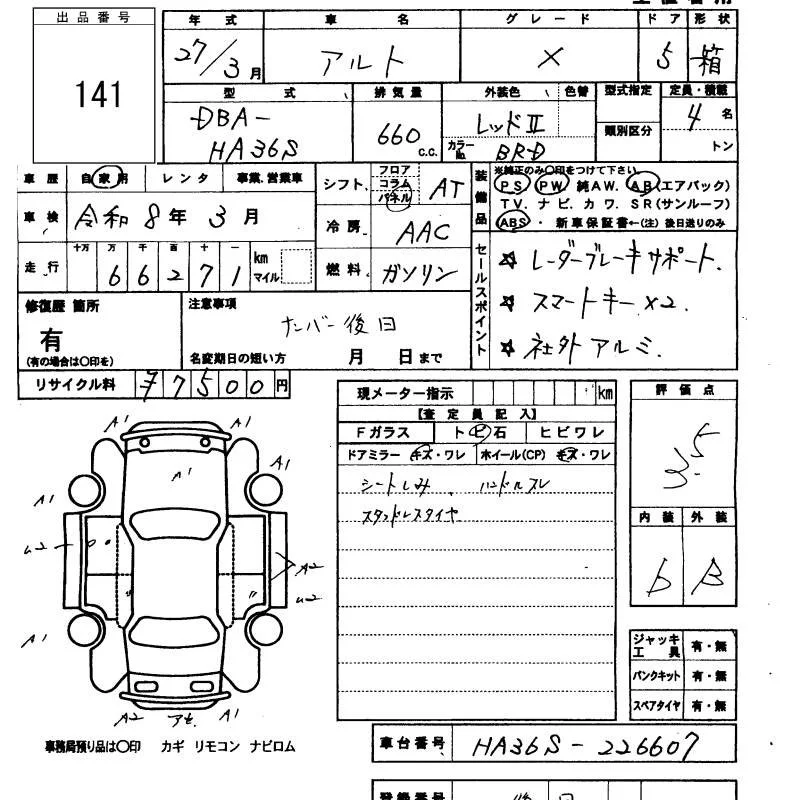 出品番号
141
年式 車名 グレード ドア 形状
27/3月 アルト X 5 箱
型式 排気量 外装色 色替 型式指定 定員・積載
DBA-
HA36S
660 c.c.
レッドⅡ
カラーNo. BRD
類別区分
4名
トン
車歴 自家用 レンタ 事業、営業車
シフト フロア コラム パネル AT
装備品
※純正のみ○印をつけて下さい
PS PW 純AW. AB(エアバック)
TV. ナビ. カワ. SR(サンルーフ)
ABS・新車保証書←(注)後日送りのみ
車検 令和8年3月
冷房 AAC
走行 十万 万 千 百 十 一
66271 km マイル
燃料 ガソリン
セールスポイント
☆ レーダーブレーキサポート.
☆ スマートキー×2.
☆ 社外アルミ.
修復歴 箇所
有
(有の場合は○印を)
注意事項
ナンバー後日
名変期日の短い方 月 日まで
リサイクル料 ¥7500円
現メーター指示 km
【査定員記入】
Fガラス トビ石 ヒビワレ
ドアミラー キズ・ワレ ホイール(CP) キズ・ワレ
シートしみ. ハンドルスレ
スタッドレスタイヤ
評価点
3.5
内装 外装
b B
A1 A1
A1 A1 A1
A1
u2 A2
u2
A1 A1
A2 アセ. A1
ジャッキ工具 有・無
パンクキット 有・無
スペアタイヤ 有・無
事務局預り品は○印 カギ リモコン ナビロム
車台番号 HA36S-226607
登録番号